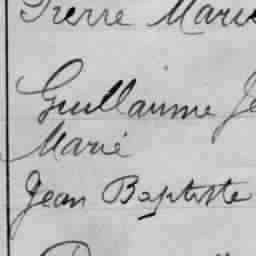 Pierre Marie
Guillaume Je
Marie
Jean Baptiste